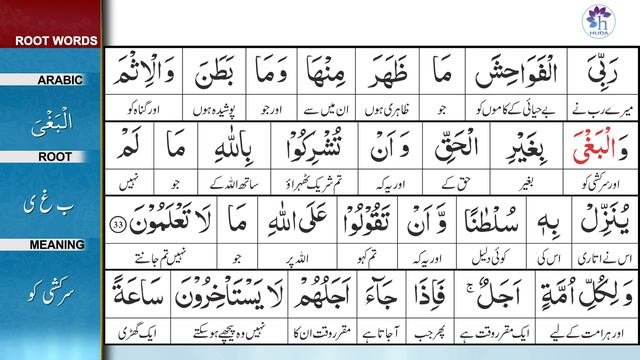 ROOT WORDS
ARABIC
الْبَغْىَ
ROOT
ب غ ی
MEANING
سرکشی کو
HUDA
رَبِّىَ الْفَوَاحِشَ مَا ظَهَرَ مِنْهَا وَمَا بَطَنَ وَالْاِثْمَ
میرے رب نے بے حیائی کے کاموں کو جو ظاہری ہوں ان میں سے اور جو پوشیدہ ہوں اور گناہ کو
وَالْبَغْىَ بِغَيْرِ الْحَقِّ وَاَنْ تُشْرِكُوْا بِاللّٰهِ مَا لَمْ
اور سرکشی کو بغیر حق کے اور یہ کہ تم شریک ٹھہراؤ ساتھ اللہ کے جو نہیں
يُنَزِّلْ بِهٖ سُلْطٰنًا وَّاَنْ تَقُوْلُوْا عَلَى اللّٰهِ مَا لَا تَعْلَمُوْنَ 33
اس نے اتاری اس کی کوئی دلیل اور یہ کہ تم کہو اللہ پر جو نہیں تم جانتے
وَلِكُلِّ اُمَّةٍ اَجَلٌ ۚ فَاِذَا جَآءَ اَجَلُهُمْ لَا يَسْتَاْخِرُوْنَ سَاعَةً
اور ہر امت کے لیے ایک مقرر وقت ہے پھر جب آجاتا ہے مقرر وقت ان کا نہیں وہ پیچھے ہوسکتے ایک گھڑی